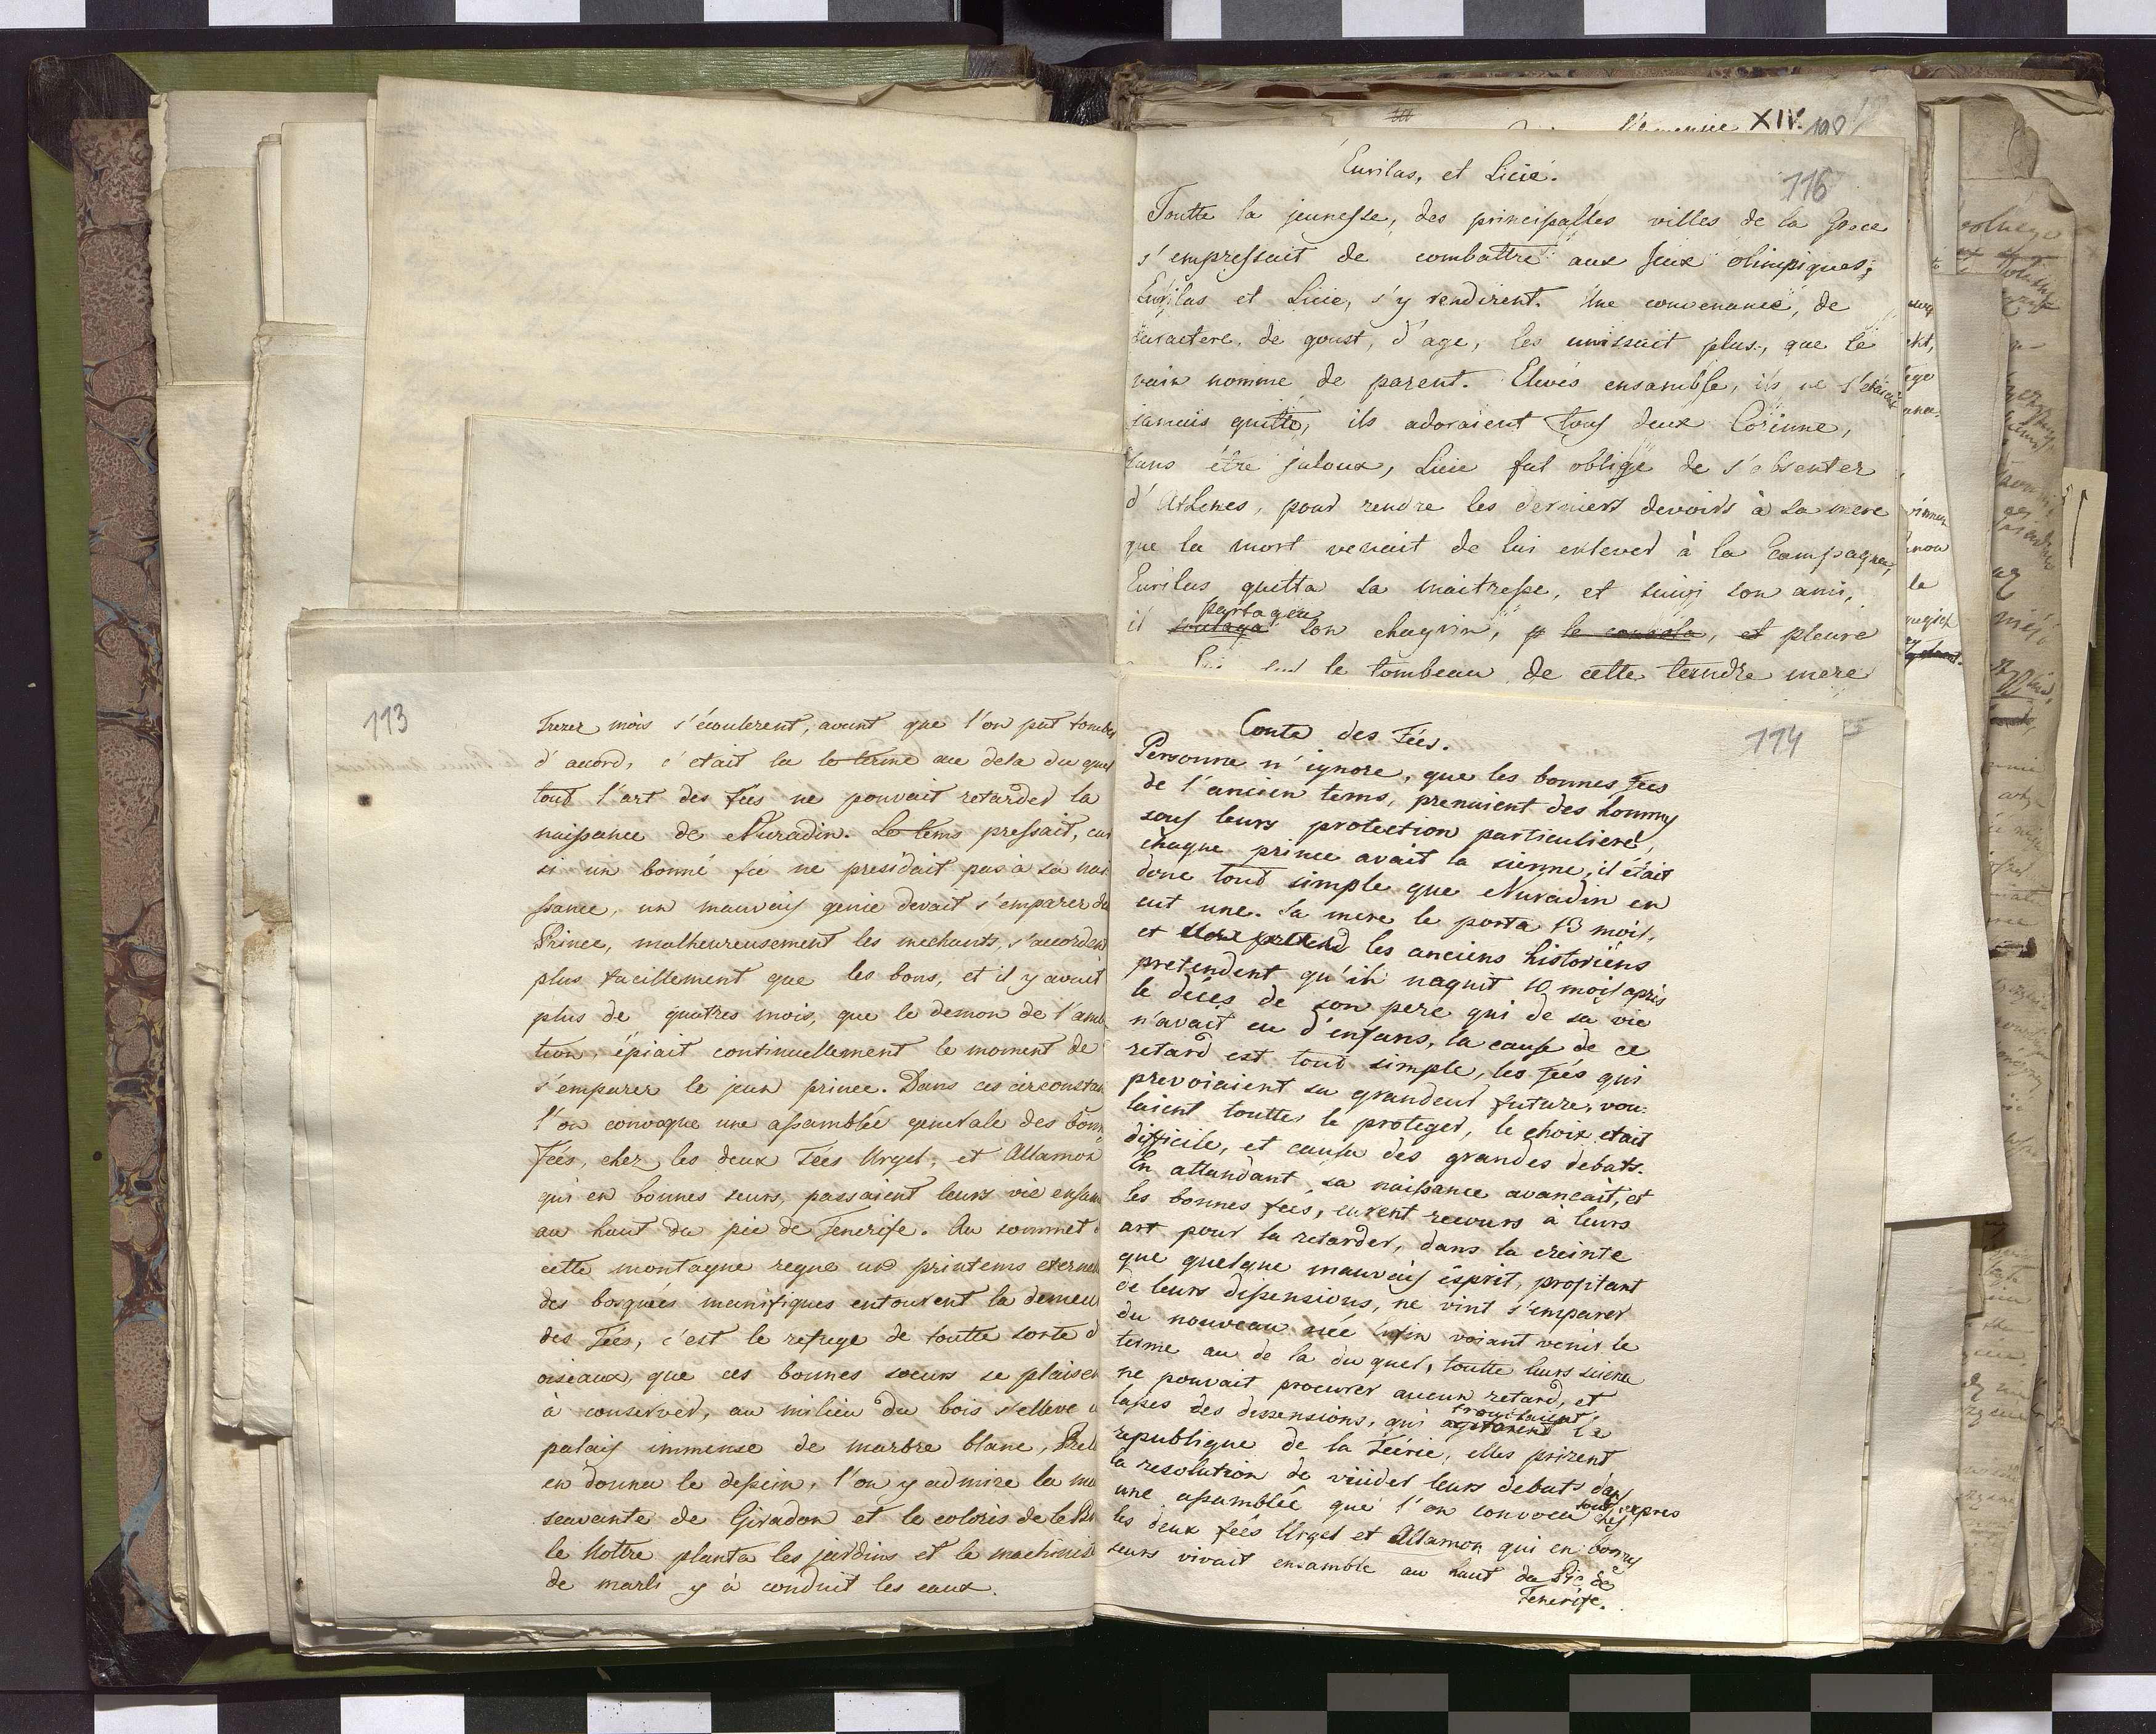 113
Trezer mois s'écoulerent, avant que l'on put tomber
d'acord, c'etait la le terme au dela du quel
tout l'art des Fées ne pouvait retarder la
naissance de Nuradin. Le tems pressait, car
si un bonne fée ne presidait pas à sa nais
ssance, un mauvais genie devait s'emparer du
Prince, malheureusement les mechants, s'accordent
plus facillement que les bons, et il y avait
plus de quatres mois, que le demon de l'ambi
tion, épiait continuellement le moment de
s'emparer le jeun prince. Dans ces circonstan
l'on convoque une assamblée generale des bonn
Fées, chez les deux Fees Urgel, et Allamon
qui en bonnes seurs, passaient leurs vie ensam
au haut du pic de Tenerife. Au sommet d
cette montagne regne un printems eternel
des bosquets manifiques entourent la demeu
des Fées, c'est le refuge de toutte sorte d
oiseaux, que ces bonnes soeurs se plaisen
à conserver, au milieu du bois s'elleve u
palais immense de marbre blanc,
en donna le dessein, l'on y admire la ma
scavante de Giradon et le coloris de le Br
le Nottre planta les jardins et la machine
de marli y à conduit les eaux.
XIV. 198
Eurilas, et Licie.
116
Toutte la jeunesse, des principalles villes de la Grece
s'empressait de combattre aux Jeux olimpiques;
Eurilas et Licie, s'y rendirent. Une convenance, de
caractere, de goust, d'age, les unissait plus, que le
vain nomme de parent. Elevés ensamble, ils ne s'etaient
jamais quitté, ils adoraient tous deux Corinne,
sans être jaloux, Licie fut obligé de s'absenter
d'Athenes, pour rendre les derniers devoirs à sa mere
que la mort venait de lui enlever à la Campagne,
Eurilas quitta sa maitresse, et suivi son ami,
il soulaga partagea son chagrin, le consola, et pleure
le tombeau de cette tendre mere
114
Conte des Fées.
Personne n'ignore, que les bonnes Fées
de l'ancien tems, prenaient des hommes
sous leurs protection particulieré,
chaque prince avait la sienne, il était
donc tout simple que Nuradin en
eut une. Sa mere le porta 13 mois,
et les anciens historiens
pretendent qu'il naquit 10 mois après
le décés de son pere qui de sa vie
n'avait eu d'enfans, la cause de ce
retard est tout simple, les Fées qui
prevoiaient sa grandeur future, vou:
laient touttes le proteger, le choix etait
difficile, et causa des grandes debats.
En attandant sa naissance avancait, et
les bonnes fées, eurent recours à leurs
art pour la retarder, dans la creinte
que quelque mauvais esprit, profitant
de leurs dissensions, ne vint s'emparer
du nouveau née Enfin voiant venir le
terme au de la du quel, toutte leurs sience
ne pouvait procurer aucun retard, et
lasses des dissensions, qui agitarent troublaient la
republique de la Féérie, elles prirent
la resolution de viuider leurs debats dans
une assamblée que l'on convoca tout expres chez
les deux feés Urgel et Allamon qui en bonnes
seurs vivait ensamble au haut du Pic de
Tenerife.